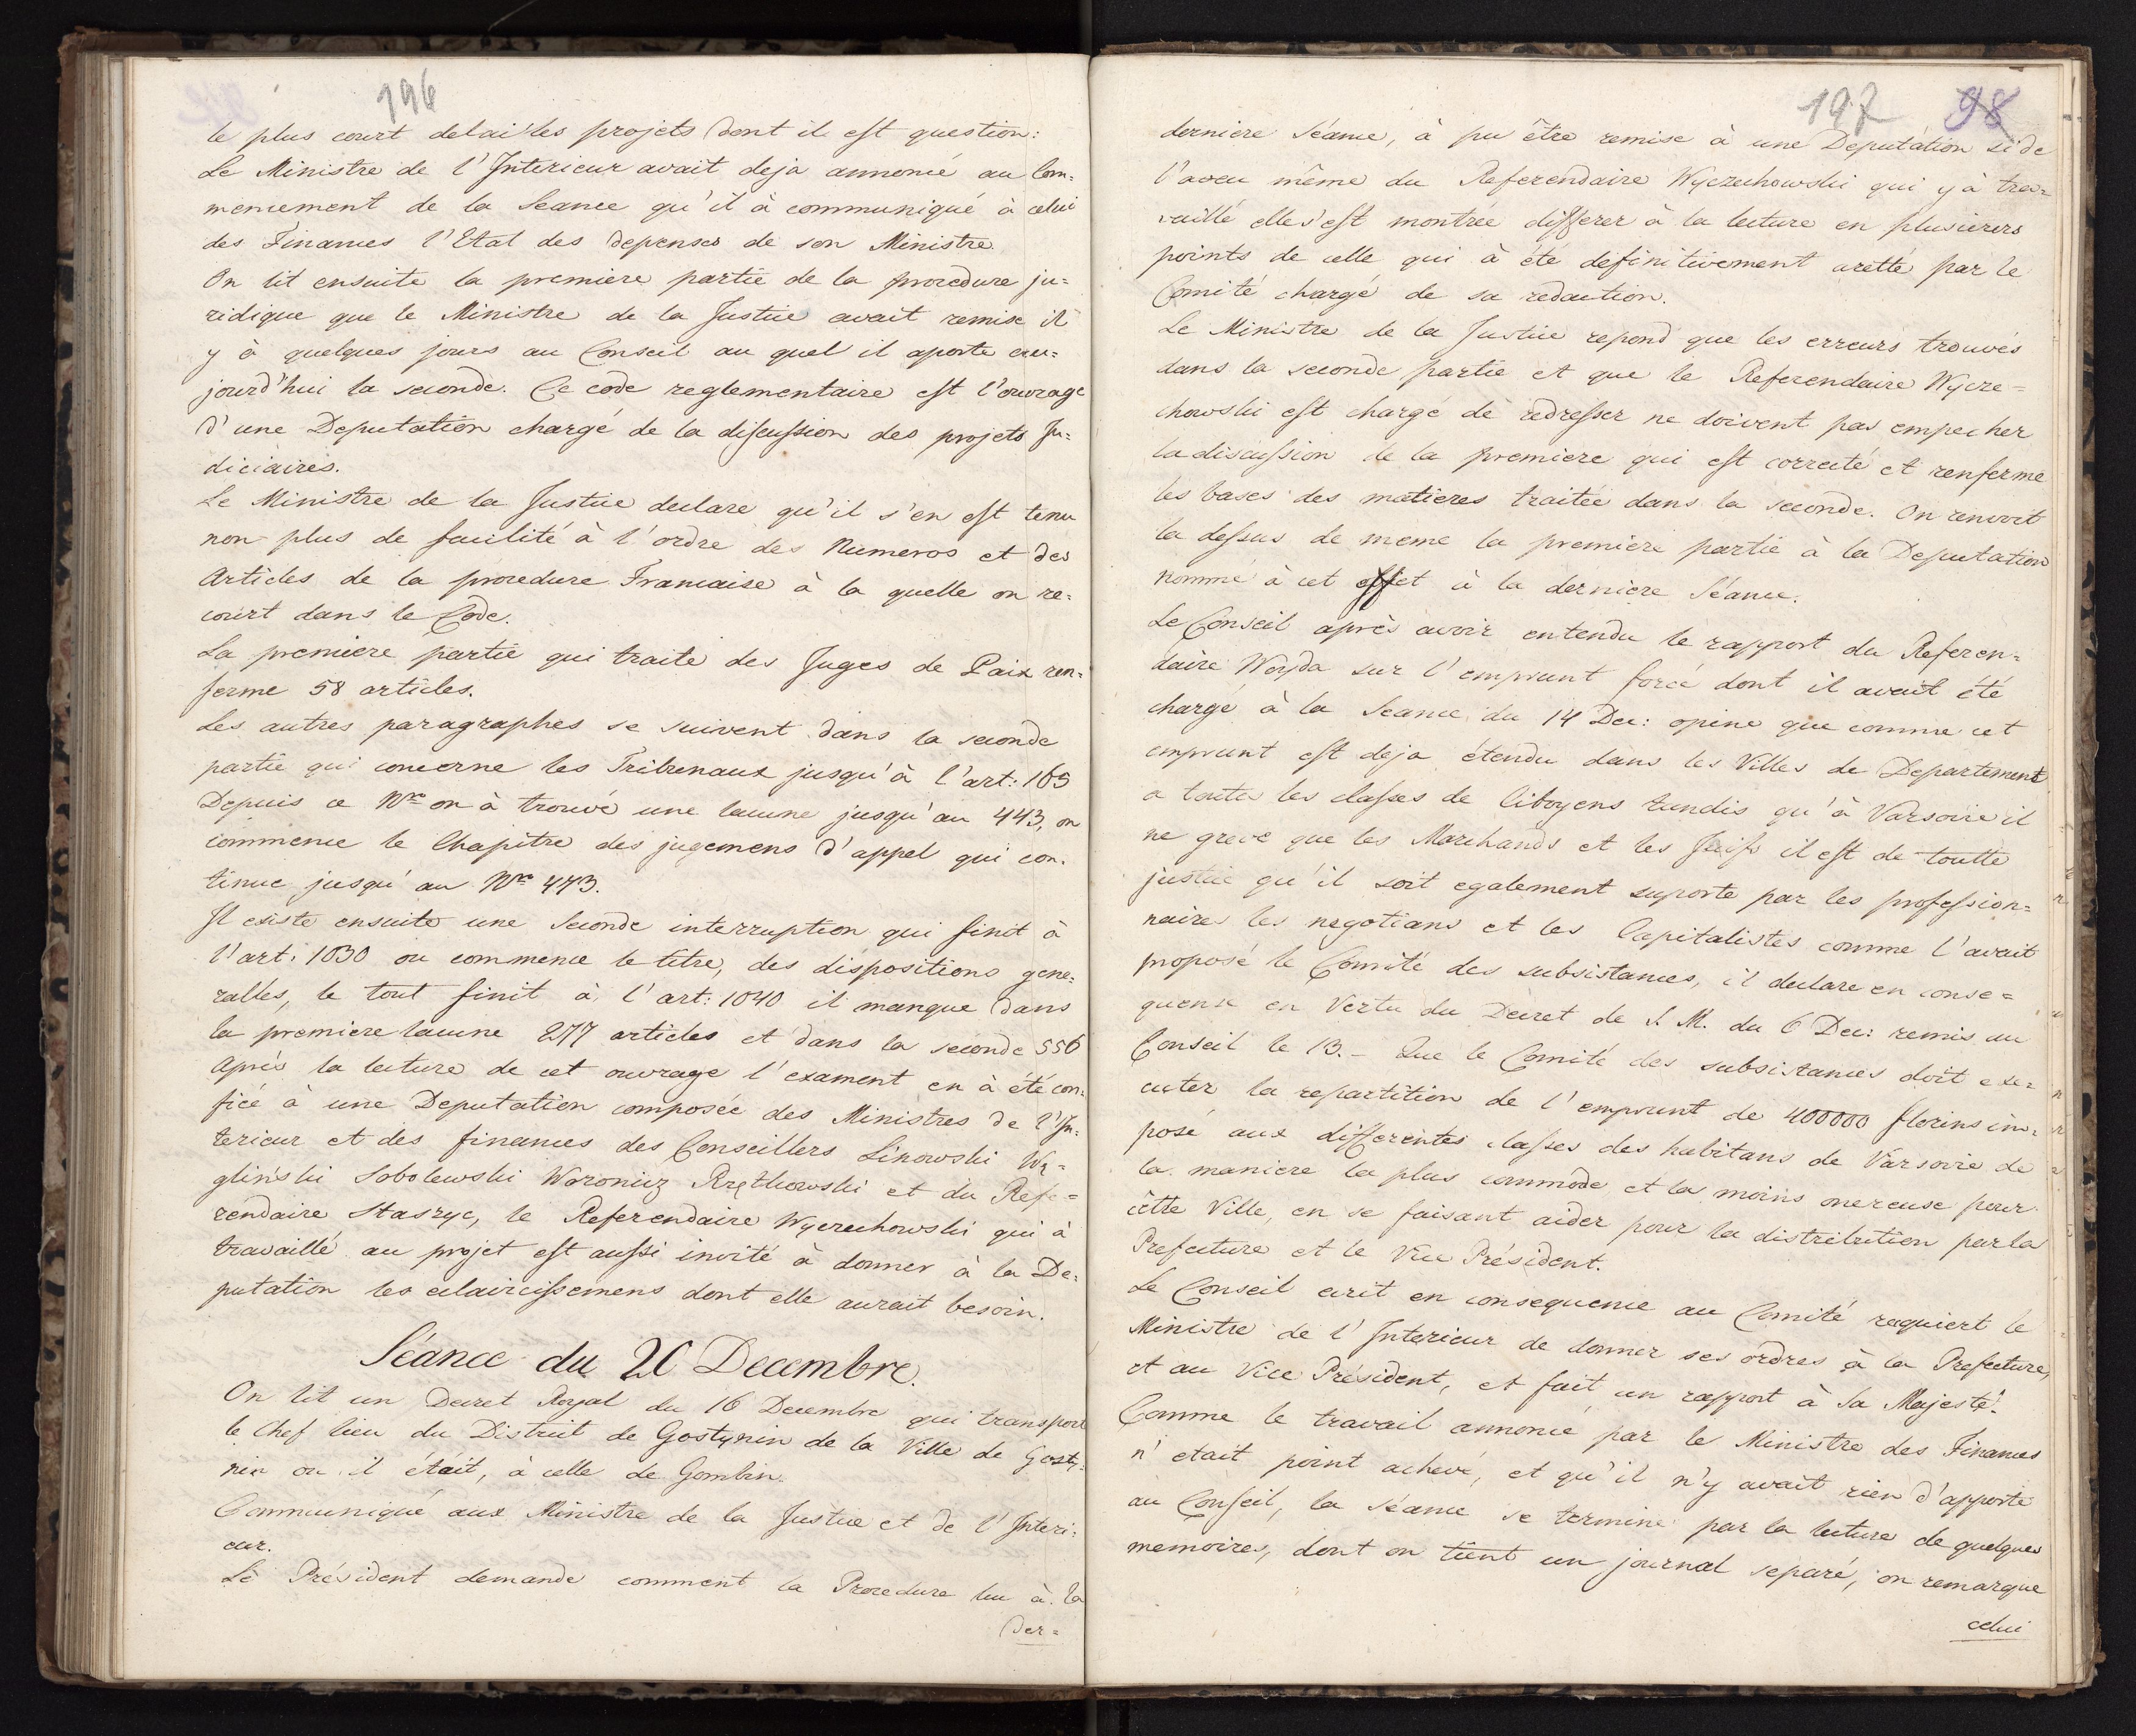 196
le plus court delai les projets dont il est question:
Le Ministre de l'Interieur avait deja annoncé au Com=
mencement de la Seance qu'il à communiqué à celui
des Finances l'Etat des depenses de son Ministre
On lit ensuite la premiere partie de la procedure ju=
ridique que le Ministre de la Justice avait remise il
y à quelques jours au Conseil au quel il aporte au=
jourd'hui la seconde. Ce code reglementaire est l'ouvrage
d'une Deputation chargé de la discussion des projets Ju=
diciaires.
Le Ministre de la Justice declare qu'il s'en est tenu
non plus de facilité à l'ordre des Numeros et des
Articles de la procedure Francaise à la quelle on re=
court dans le Code.
La premiere partie qui traite des Juges de Paix ren=
ferme 58 articles.
Les autres paragraphes se suivent dans la seconde
partie qui concerne les Tribunaux jusqu'à l'art: 165
Depuis ce Nro on à trouvé une lacune jusqu'au 443, on
commence le Chapitre des jugemens d'appel qui con=
tinue jusqu'au Nro 473.
Il existe ensuite une Seconde interruption qui finit à
l'art: 1030 ou commence le titre, des dispositions gene=
ralles, le tout finit à l'art: 1040 il manque dans
la premiere lacune 277 articles et dans la seconde 556
Après la lecture de cet ouvrage l'exament en à été con=
fiée à une Deputation composée des Ministres de l'In=
terieur et des finances des Conseillers Linowski Wę=
gliński Sobolewski Woronicz Rzętkowski et du Refe=
rendaire Staszyc, le Referendaire Wyczechowski qui à
travaillé au projet est aussi invité à donner à la De=
putation les eclaircissemens dont elle aurait besoin.
Séance du 20 Decembre.
On lit un Decret Royal du 16 Decembre qui transport
le Chef lieu du District de Gostynin de la Ville de Gosty=
nin ou il était, à celle de Gombin.
Communiqué aux Ministre de la Justice et de l'Interi=
eur.
Le Président demande comment la Procedure lu à la
der=
197 98
derniere Séance, à pu être remise à une Deputation si de
l'aveu même du Referendaire Wyczechowski qui y à tra=
vaillé elle s'est montrée differer à la lecture en plusieurs
points de celle qui à été definitivement aretté par le
Comité chargé de sa redaction.
Le Ministre de la Justice repond que les erreurs trouvés
dans la seconde partie et que le Referendaire Wycze=
chowski est chargé de redresser ne doivent pas empecher
la discussion de la premiere qui est correcté et renferme
les bases des matieres traitée dans la seconde. On renvoit
la dessus de meme la premiere partie à la Deputation
nommé à cet effet à la derniere Séance.
Le Conseil après avoir entendu le rapport du Referen=
daire Woyda sur l'emprunt forcé dont il avait été
chargé à la Seance du 14 Dec: opine que comme cet
emprunt est deja étendu dans les Villes de Departement
a toutes les classes de Citoyens tandis qu'à Varsovie il
ne greve que les Marchands et les Juifs il est de toutte
justice qu'il soit egalement suporté par les profession=
naires les negotians et les Capitalistes comme l'avait
proposé le Comité des subsistances, il declare en conse=
quense en Vertu du Decret de S. M. du 6 Dec: remis au
Conseil le 13. – Que le Comité des subsistances doit exe=
cuter la repartition de l'emprunt de 400000 florins im=
posé aux differentes classes des habitans de Varsovie de
la maniere la plus commode et la moins onereuse pour
cette Ville, en se faisant aider pour la distribution par la
Prefecture et le Vice Président.
Le Conseil ecrit en consequence au Comité requiert le
Ministre de l'Interieur de donner ses ordres à la Prefecture,
et au Vice Président, et fait un rapport à Sa Majesté.
Comme le travail annoncé par le Ministre des Finances
n'etait point achevé, et qu'il n'y avait rien d'apporté
au Conseil, la Séance se termine par la lecture de quelques
memoires, dont on tient un journal separé, on remarque
celui